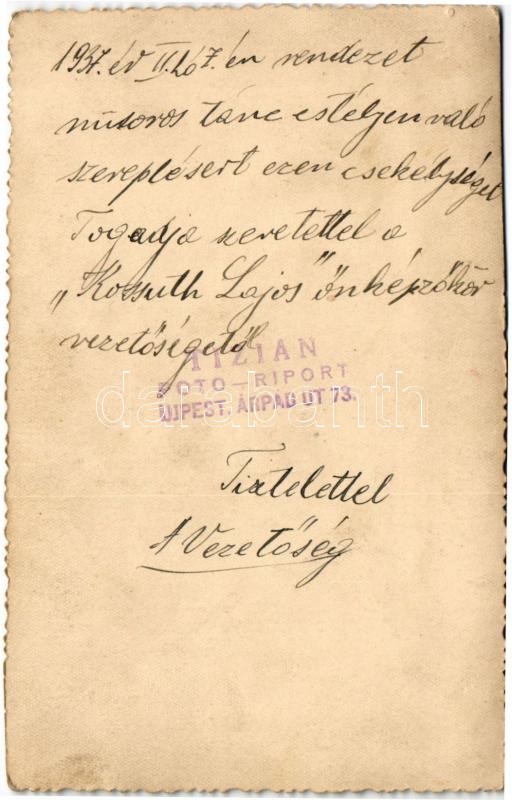 1937. év II. hó 7.-én rendezet
műsoros tánc estélyen való
szereplésért ezen csekélységet
Fogadja szeretettel a
„Kossuth Lajos" önképzőkör
vezetőségétől
TIZIAN
FOTO-RIPORT
UJPEST, ÁRPÁD UT 73.
darabanth
Tisztelettel
A Vezetőség